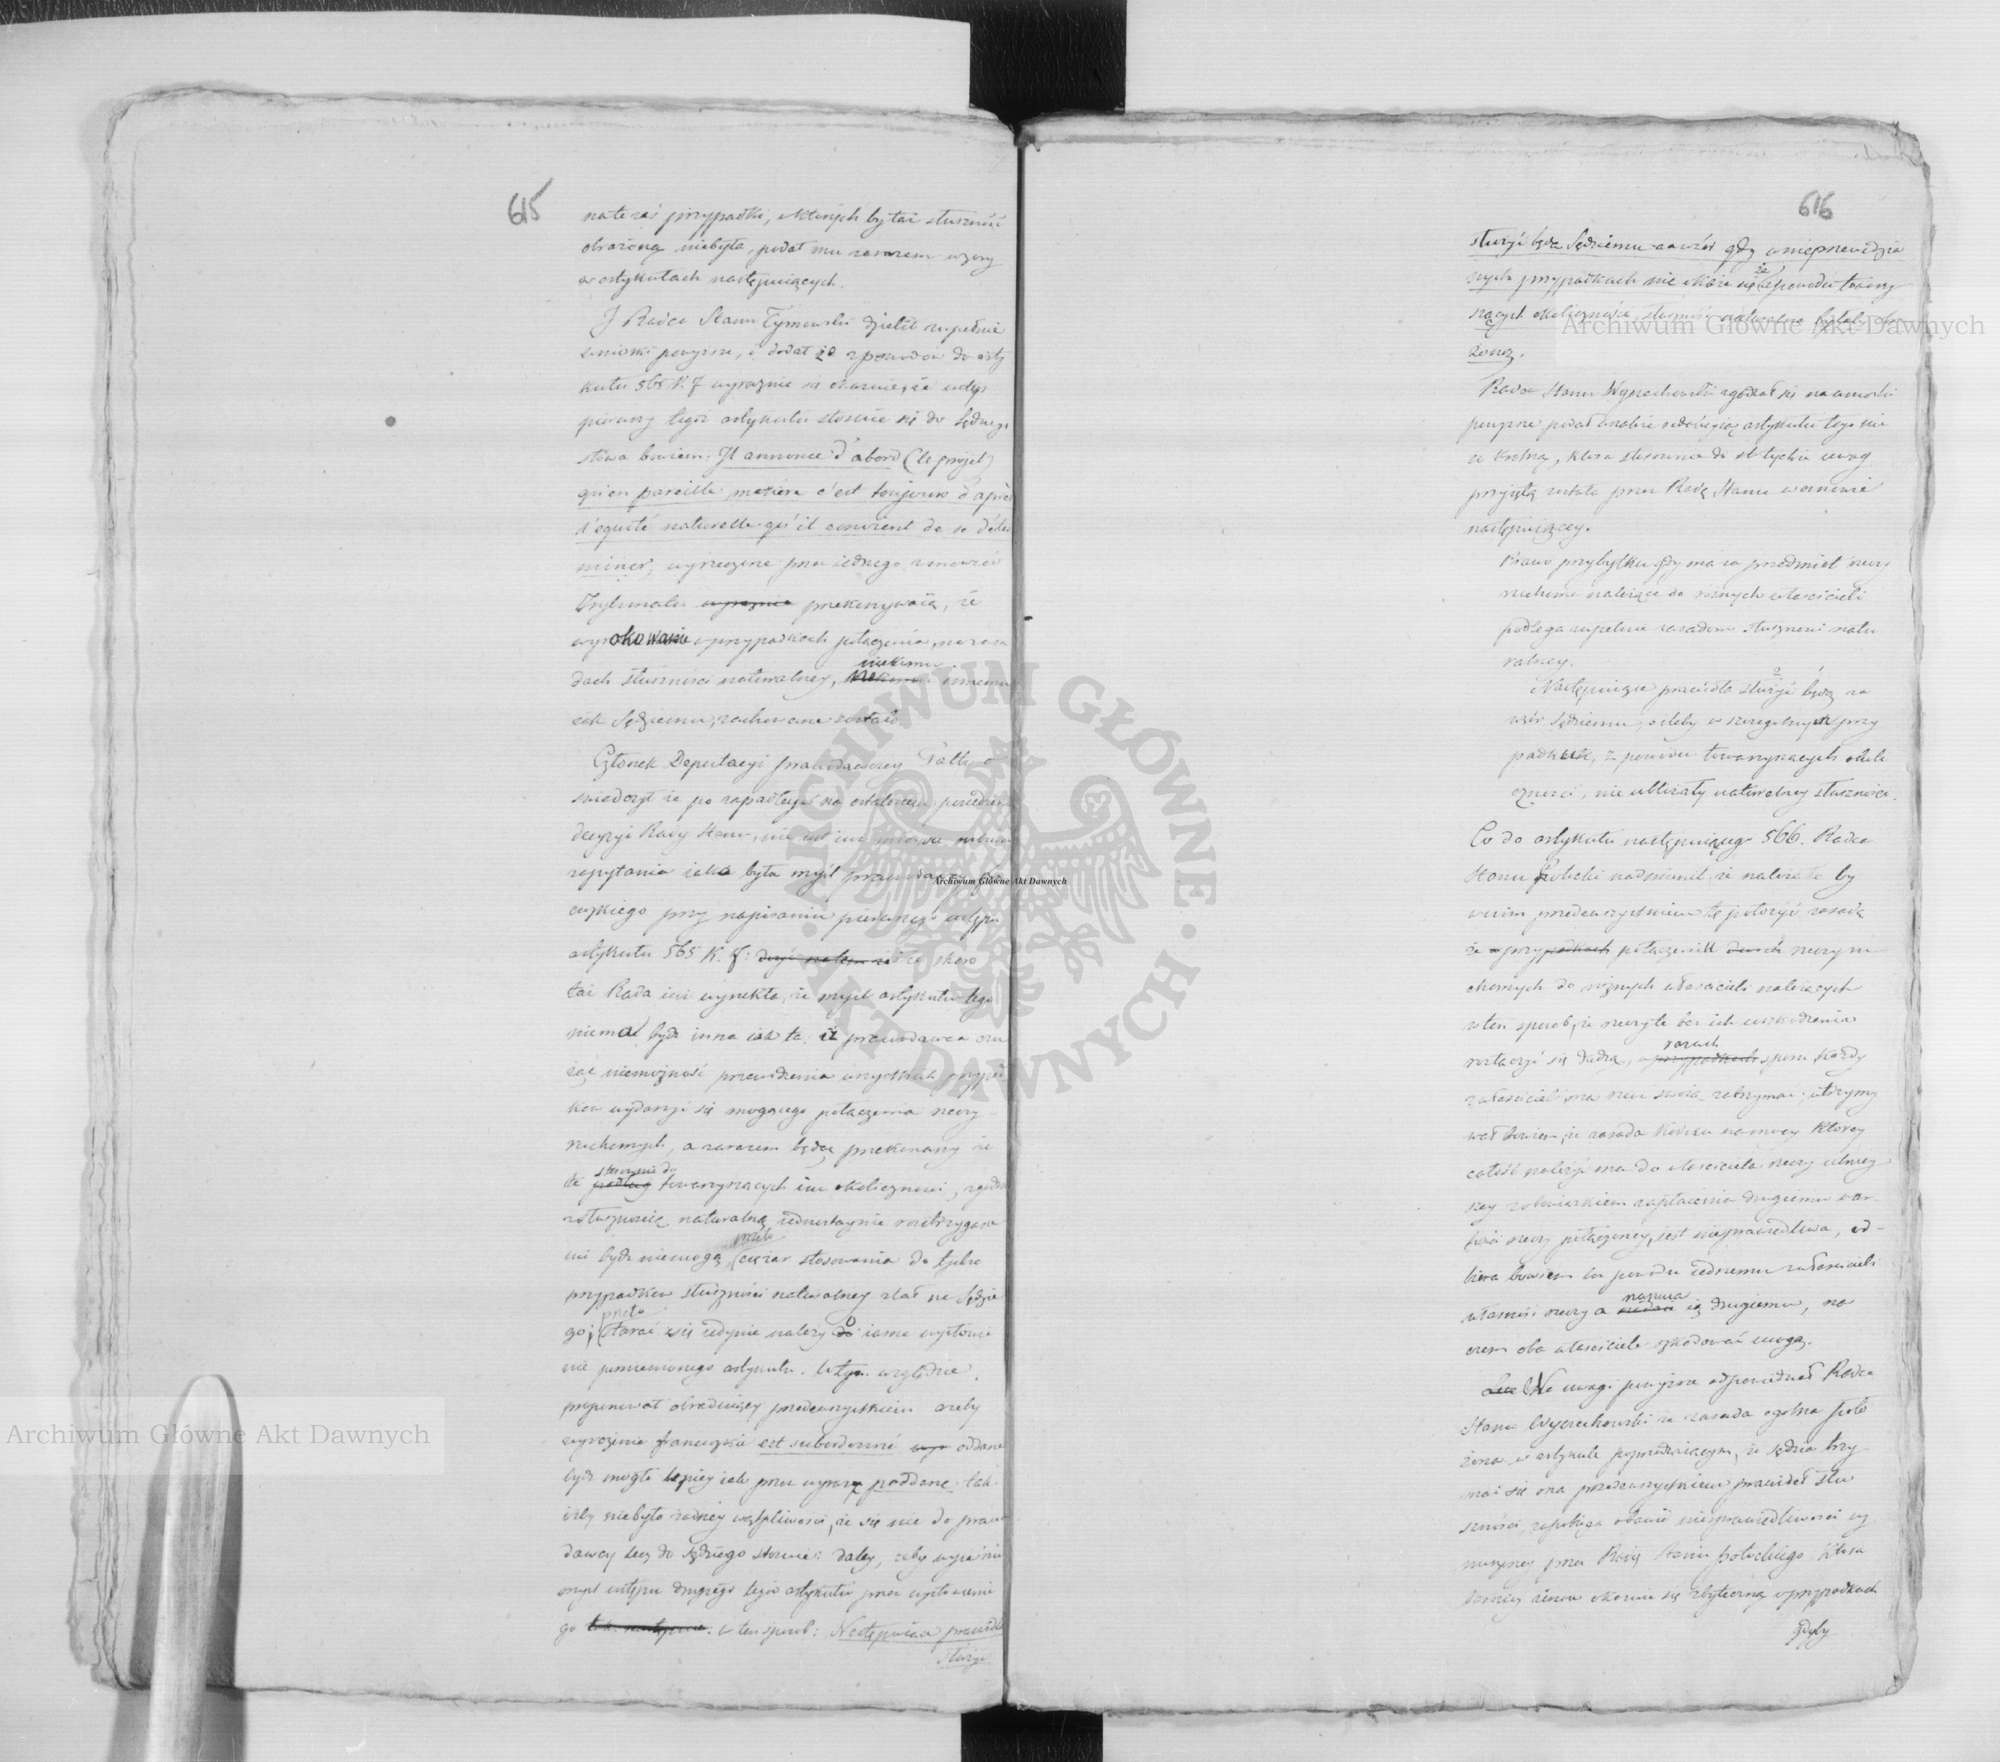 615
nateraz przypadki, w których by taż słuszność
obrażoną niebyła, podał mu zarazem wzory
w artykułach następuiących.
J Radca Stanu Tymowski dzielił zupełnie
wnioski powyższe, i dodał że z powodów do arty
kułu 565 K. f wyraźnie się okazuie, że ustęp
pierwszy tegoż artykułu stosuie się do Sędziego
słowa bowiem: Il annonce d'abord (le projet)
qu'en pareille matière c'est toujours d'après
l'equité naturelle qu'il convient de se déter
miner, wyrzeczone przez iednego z mowców
Trybunatu wyraznie przekonywaią, że
wyrokowanie w przypadkach połączenia, na zasa
dach słuszności naturalney, niekomu innemu
iak Sędziemu, zachowane zostało.
Członek Deputacyi prawodawczey
świadczył że po zapadłey na ostatniem posiedzeniu
decyzyi Rady Stanu, nie iest iuż mieysce
zapytania iaka była myśl prawodawcy fran
cuzkiego przy napisaniu pierwszego ustępu
artykułu 565 K. f: że skoro
taż Rada iuż wyrzekła, że myśl artykułu tego
niema bydź inna iak ta: iż prawodawca czu
iąc niemożność przewidzenia wszystkich przypad
ków wydarzyć się mogącego połączenia rzeczy
ruchomych, a zarazem będąc przekonany że
te podług stosownie do towarzyszących im okoliczności, zgodnie
z słusznością naturalną iednostaynie rozstrzygane
mi bydź niemogą, przeto ciężar stosowania do tych
przypadków słuszności naturalney zlał na Sędzie
go; przeto starać się iedynie należy o iasne wysłowie
nie pomienionego artykułu. W tym względzie
proponował obradniący przedewszystkiem ażeby
wyrażenie francuzkie est subordonné oddane
bydź mogło lepiey iak przez wyraz poddane tak
iżby niebyło żadney wątpliwości, że się nie do prawo
dawcy lecz do Sędziego stosuie: daley, żeby wyiaśnić
myśl ustępu drugiego tegoż artykułu przez wysłowienie
go w ten sposób: Następuiące prawidła
służyć
616
służyć będą Sędziemu za wzór gdy w nieprzewidzia
nych przypadkach nie okaże się że z powodu towarzy
szących okoliczności, słuszność naturalna byłaby obra
żoną.
Radca Stanu Wyczechowski zgodził się na wnioski
powyższe podał osnowę artykułu tego
która stosownie do tychże uwag
przyiętą została przez Radę Stanu w osnowie
następuiącey.
Prawo przybytku gdy ma za przedmiot rzeczy
ruchome należące do różnych właścicieli
podlega zupełnie zasadom słuszności natu
ralney.
Następuiące prawidła służyć będą za
wzór Sędziemu, ażeby w szczególnych przy
padkach, z powodu towarzyszących okoli
czności, nie ubliżały naturalney słuszności.
Co do artykułu następuiącego 566. Radca
Stanu Potocki nadmienił, że należało by
w nim przedewszystkiem tę położyć zasadę
że w przypadkach połączenia dwóch rzeczy ru
chomych do różnych właścicieli należących
w ten sposób, że rzeczy te bez ich uszkodzenia
rozłączyć się dadzą, w przypadkach razach sporu każdy
właściciel ma rzecz swoią zatrzymać; utrzymy
wał bowiem, że zasada Kodexu na mocy którey
całość należeć ma do właściciela rzeczy główney
z obowiązkiem zapłacenia drugiemu war
tości rzeczy połączoney, iest niesprawiedliwa, od-
biera bowiem bez powodu iednemu właścicielowi
własność rzeczy a narzuca ią drugiemu, na
czem oba właściciele szkodować mogą.
Lecz Na uwagi powyższe odpowiedział Radca
Stanu Wyczechowski że zasada ogólna poło
żona w artykule poprzedzaiącym, że Sędzia trzy
mać się ma przedewszystkiem prawideł słu
szności, zapobiega obawie niesprawiedliwości wy
nurzoney przez Radcę Stanu Potockiego; która
okazuie się zbyteczną w przypadkach
gdyby
Archiwum Główne Akt Dawnych
Archiwum Główne Akt Dawnych
Archiwum Główne Akt Dawnych
ARCHIWUM GŁÓWNE · AKT DAWNYCH ·